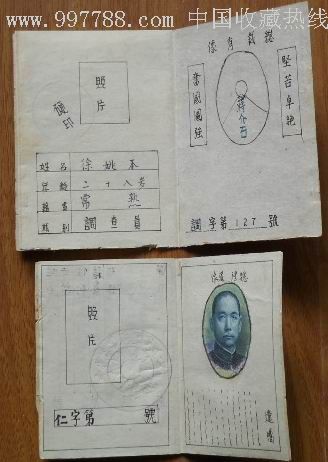 www.997788.com 中国收藏热线
照片
硬印
姓名 徐姚本
年齡 二十八岁
籍貫 常熟
職別 調查員
總裁肖像
奮國圖強
堅苦卓絕
蔣介石
調字第127號
照片
仁字第 號
總理遺像
遺囑